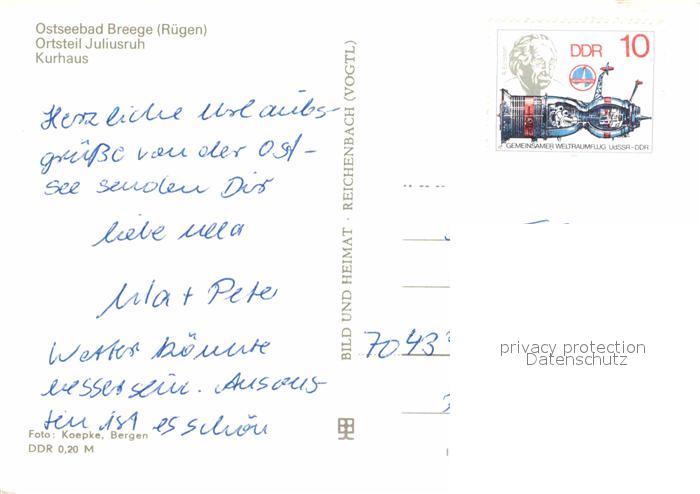 Ostseebad Breege (Rügen)
Ortsteil Juliusruh
Kurhaus
Herzliche Urlaubs-
grüße von der Ost-
see senden Dir
liebe
+ Peter
Wetter könnte
besser sein. Ansons-
ten ist es schön
Foto: Koepke, Bergen
DDR 0,20 M
BILD UND HEIMAT · REICHENBACH (VOGTL)
DDR 10
GEMEINSAMER WELTRAUMFLUG UdSSR-DDR
7043
privacy protection
Datenschutz